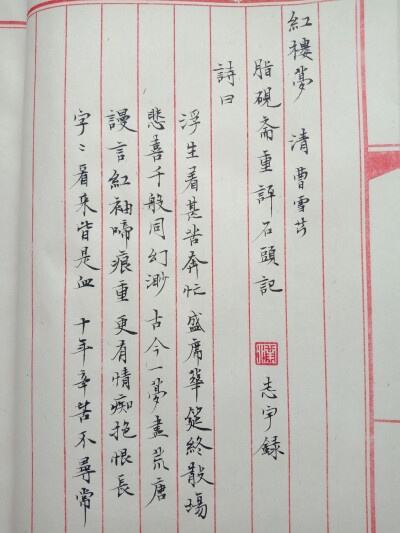 紅樓夢 清 曹雪芹
脂硯斎重評石頭記 志宇録
詩曰
浮生着甚苦奔忙 盛席華筵終散場
悲喜千般同幻渺 古今一夢盡荒唐
謾言紅袖啼痕重 更有情痴抱恨長
字〻看来皆是血 十年辛苦不尋常